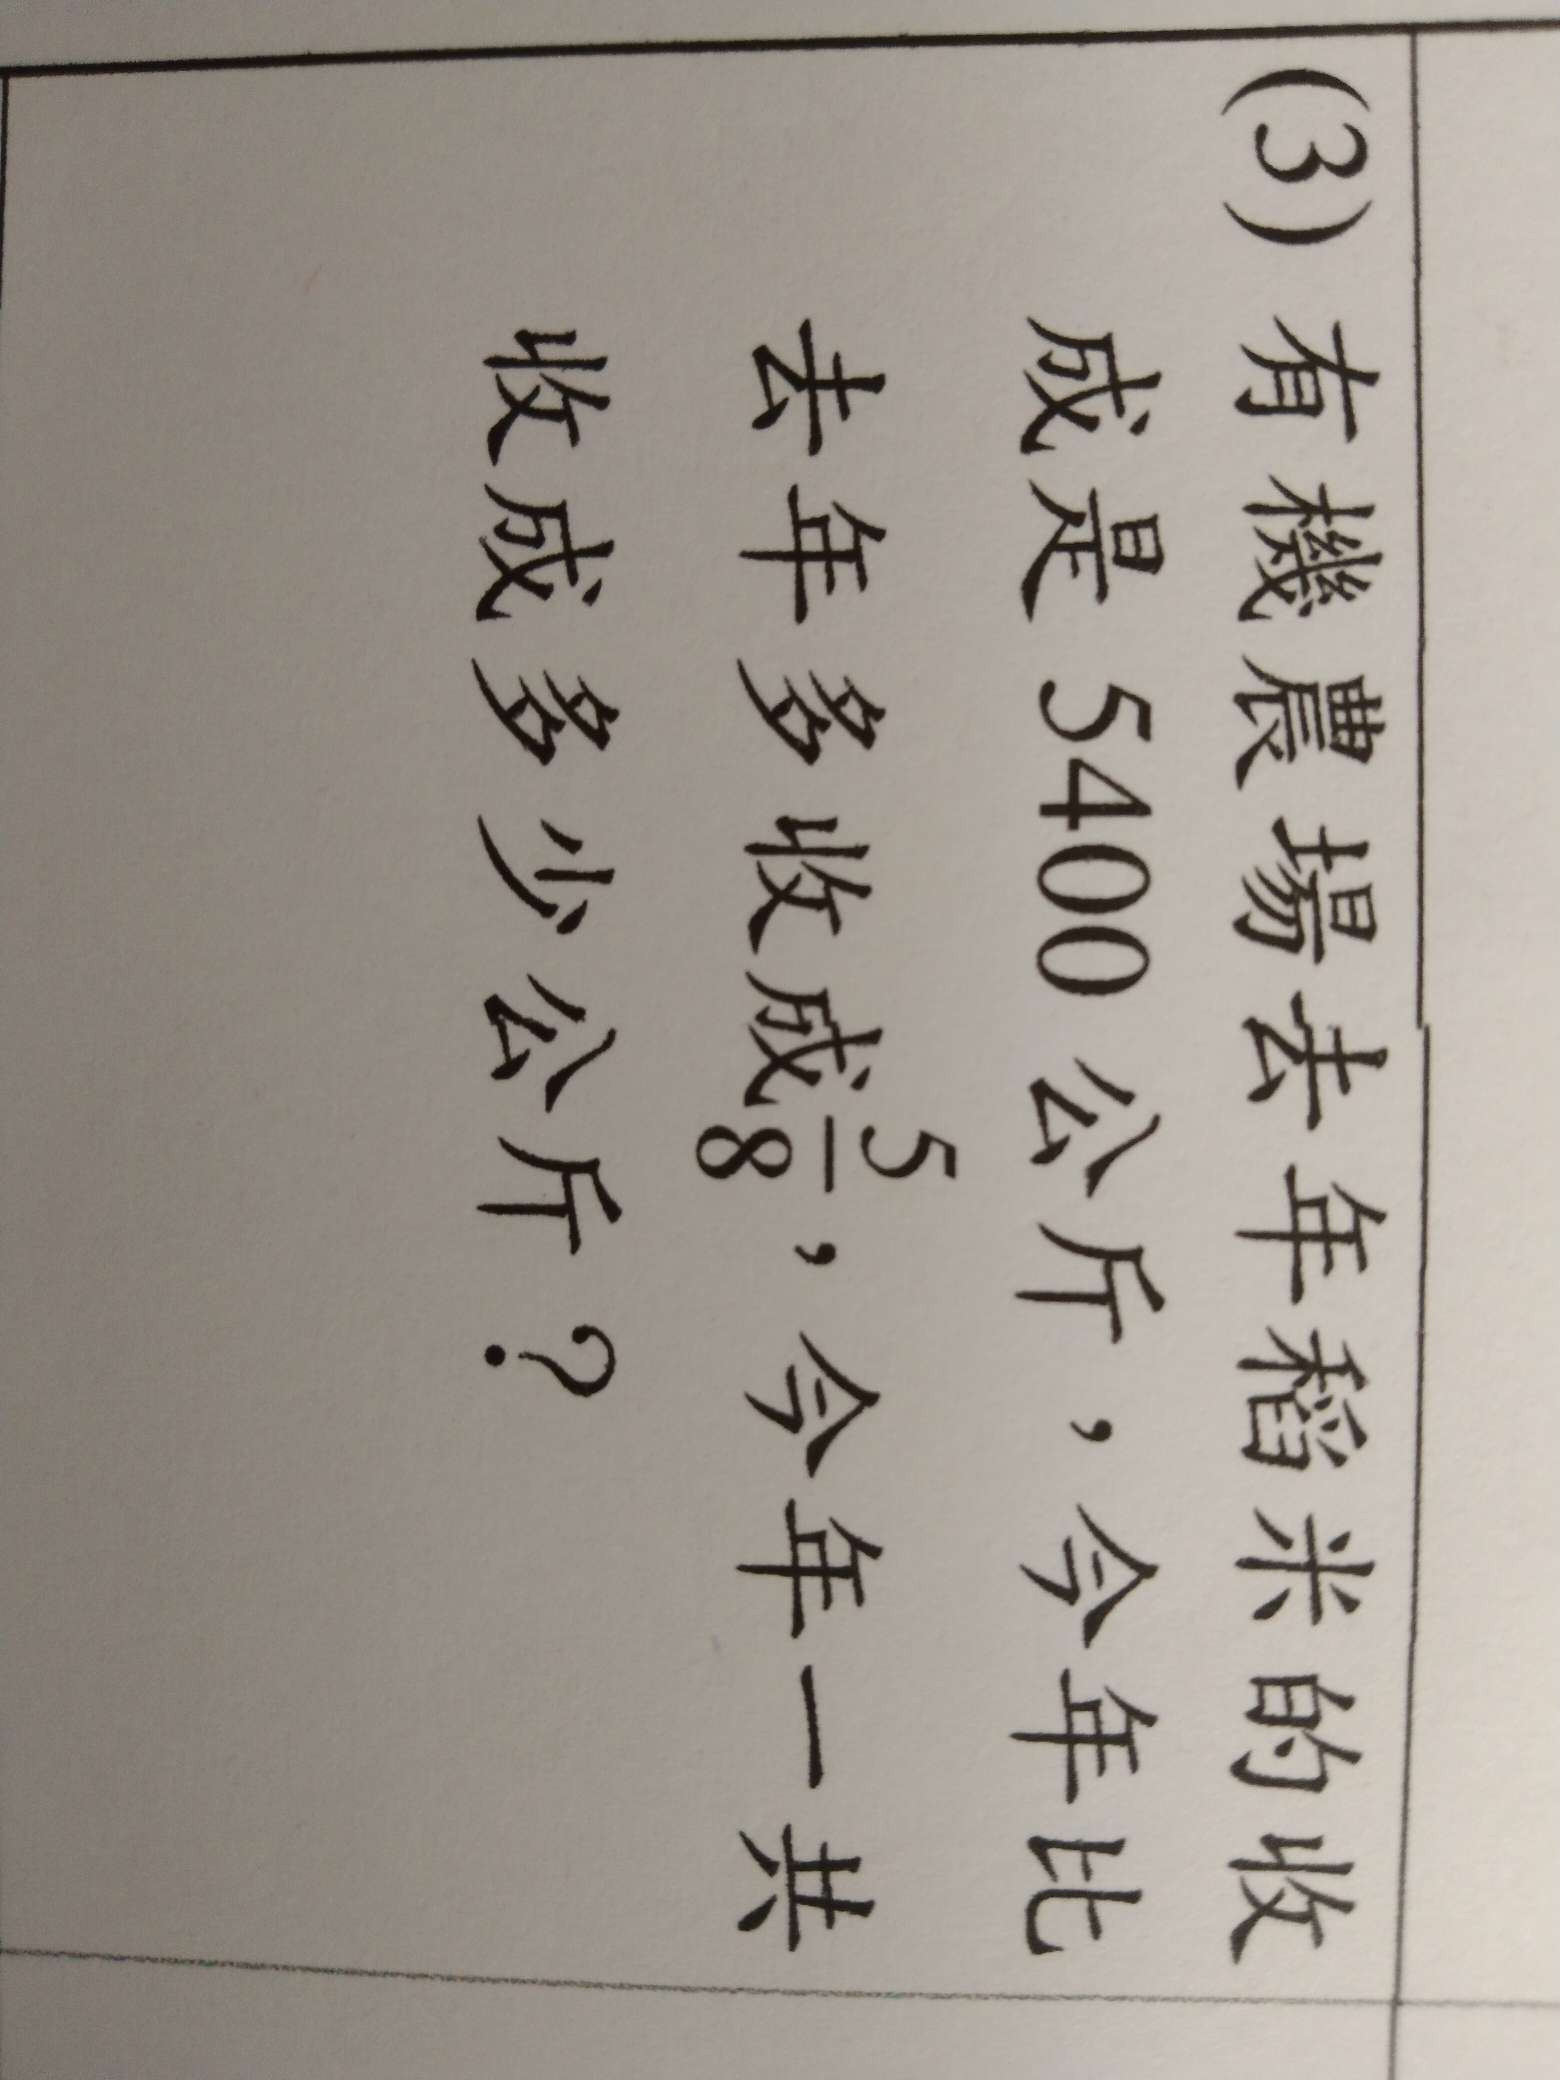 (3) 有機農場去年稻米的收
成是 5400 公斤，今年比
去年多收成5/8，今年一共
收成多少公斤？